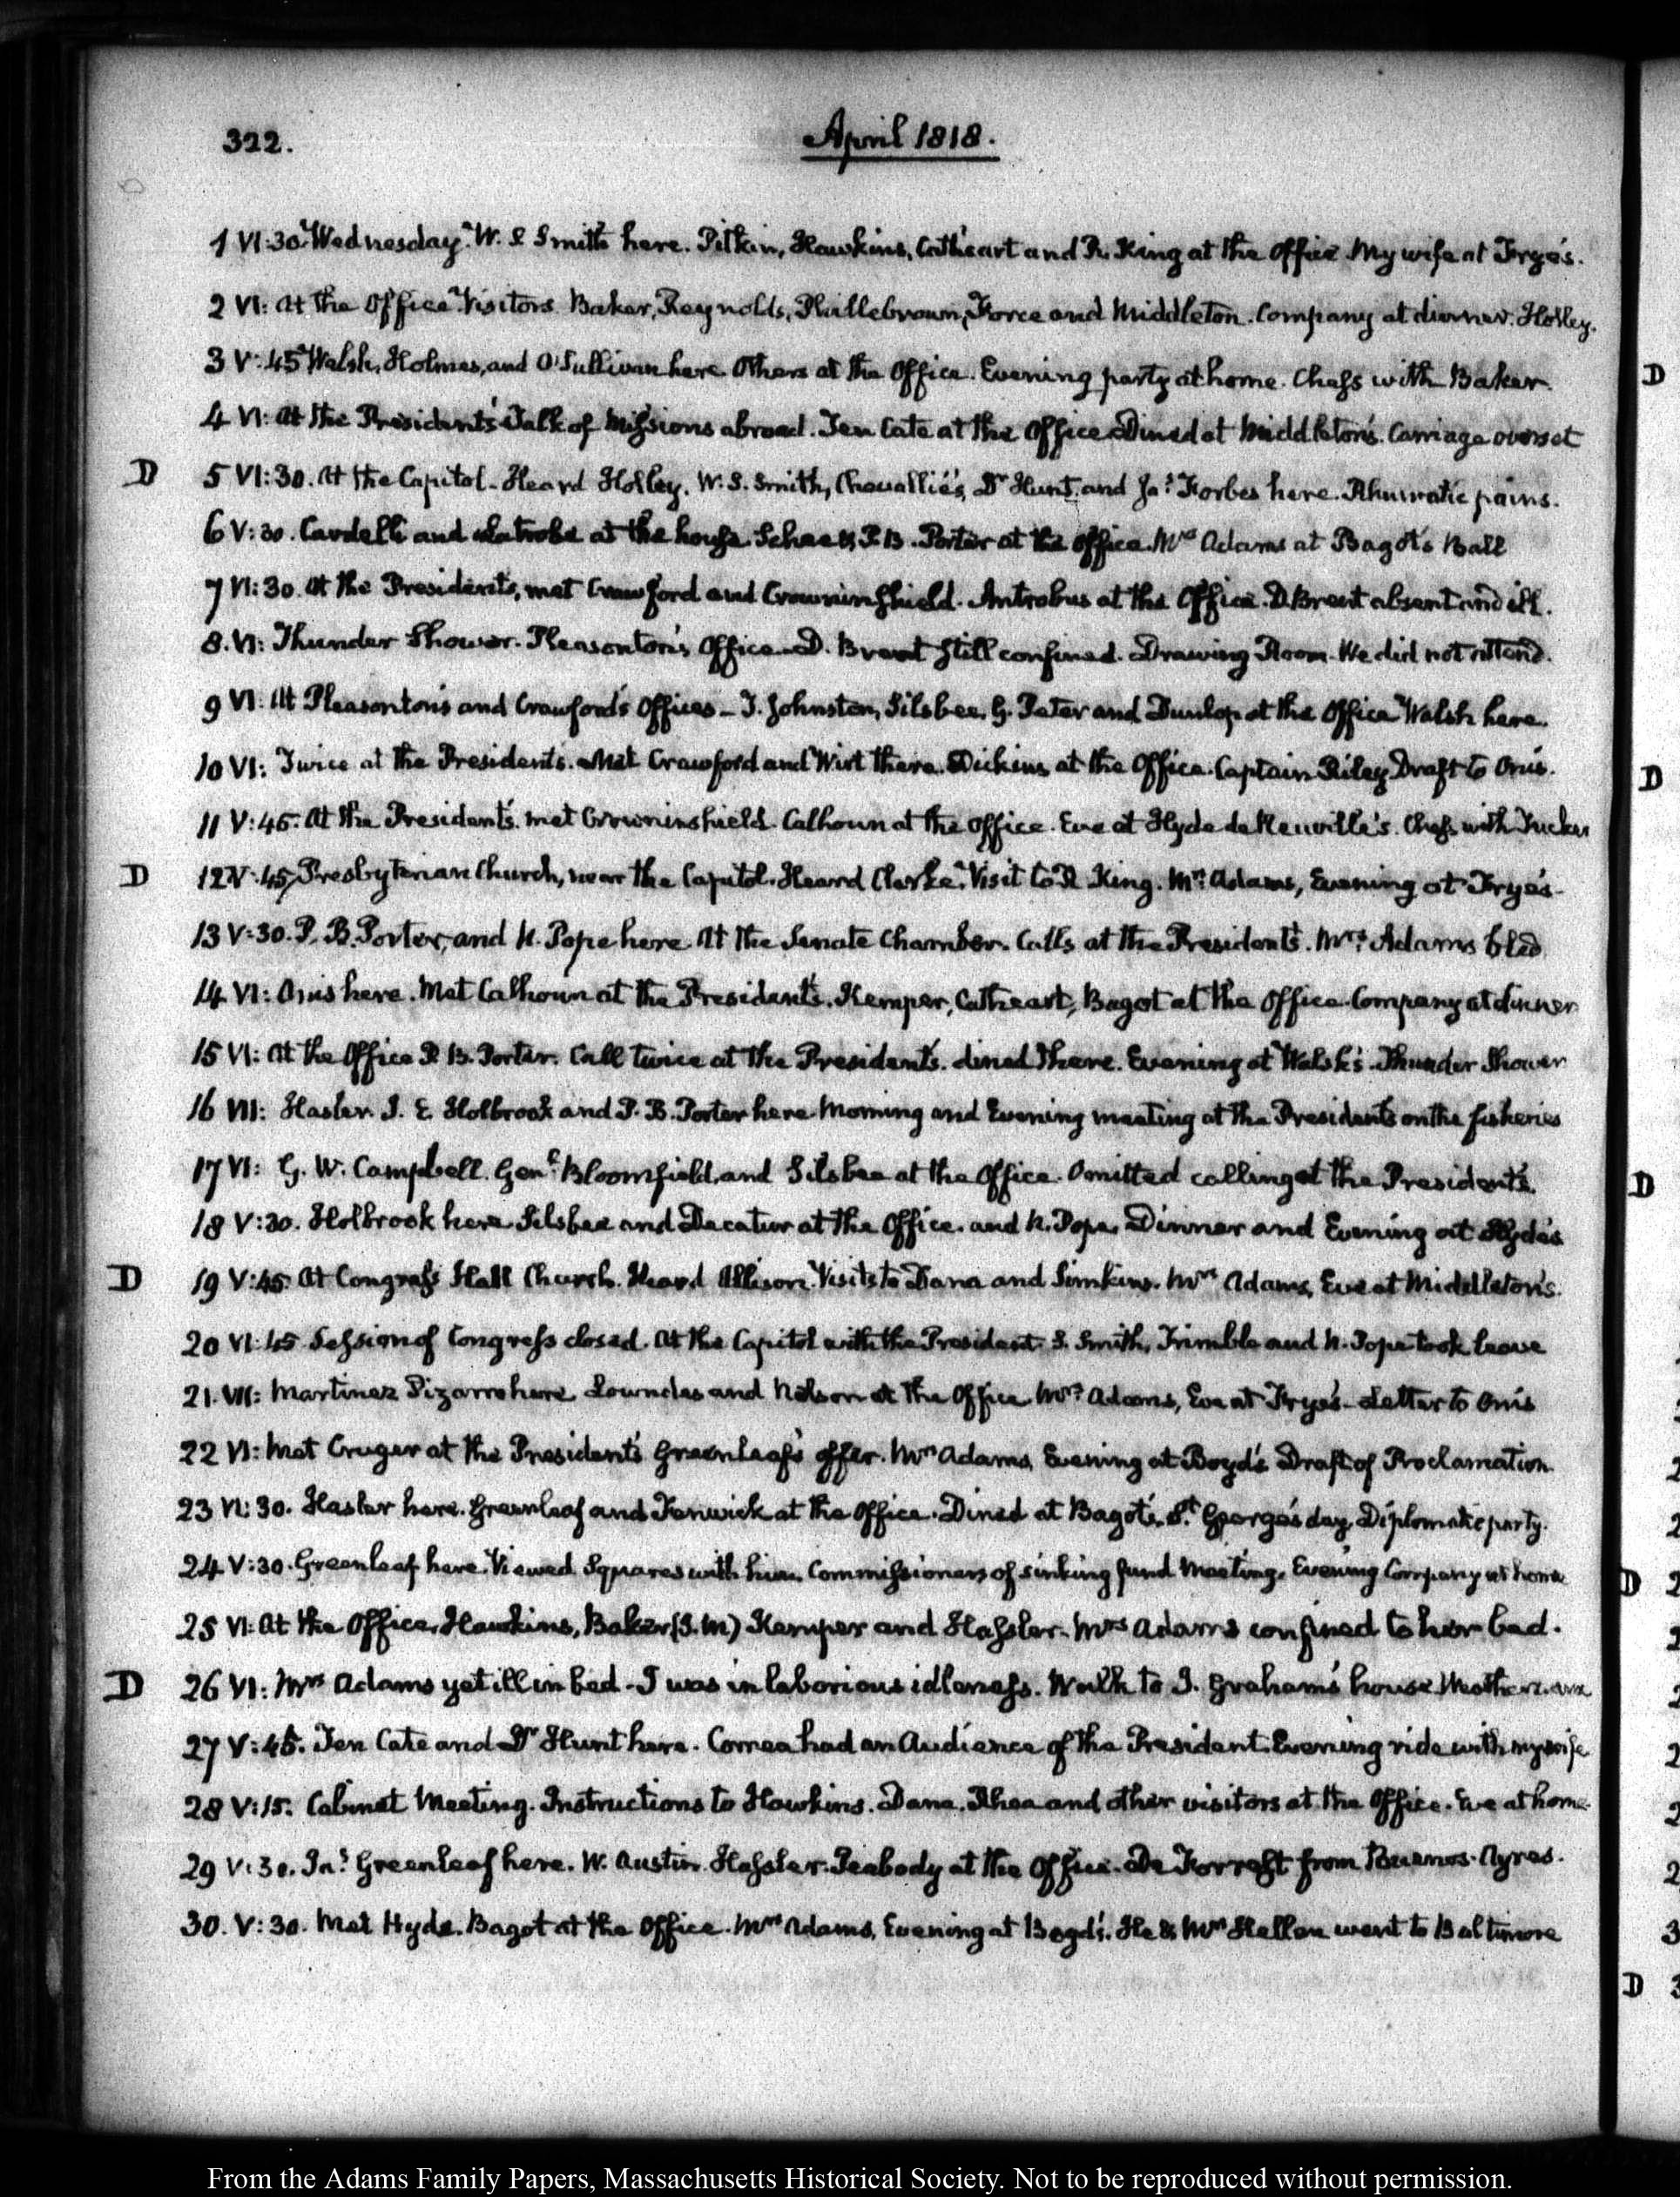 322.
April 1818.
1 VI:30. Wednesday. W. S Smith here. Pitkin, Hawkins, Cathcart and R. King at the Office My wife at Frye's.
2 VI: At the Office Visitors Baker, Reynolds, Force and Middleton. Company at dinner. Holley.
3 V:45 Walsh, Holmes, and O'Sullivan here Others at the Office. Evening party at home. Chess with Baker.
4 VI: At the President's Talk of Missions abroad. Ten Cate at the Office Dined at Middleton's. Carriage overset
D 5 VI:30. At the Capitol. Heard Holley. W. S. Smith, Chevallié's, Dr Hunt. and Jas. Forbes here. Rhumatic pains.
6 V:30. Cardelli and Latrobe at the house. P. B. Porter at the office. Mrs Adams at Bagot's Ball
7 VI:30. At the President's, met Crawford and Crowninshield. Antrobus at the Office. D. Brent absent and ill.
8. VI: Thunder Shower. Pleasonton's Office. D. Brent still confined. Drawing Room. We did not attend.
9 VI: At Pleasonton's and Crawford's Offices – J. Johnston, Silsbee, G. Peter and Dunlop at the Office Walsh here.
10 VI: Twice at the President's. Met Crawford and Wirt there. Dickins at the Office. Captain Riley Draft to Onis.
11 V:45. At the President's. met Crowninshield. Calhoun at the office. Eve at Hyde de Neuville's. Chess with Tucker
D 12 V:45, Presbyterian Church, near the Capitol. Heard Clarke. Visit to R King. Mrs. Adams, Evening at Frye's.
13 V:30. P. B. Porter, and N. Pope here. At the Senate Chamber. Calls at the President's. Mrs. Adams bled.
14 VI: Onis here. Met Calhoun at the President's. Kemper, Cathcart, Bagot at the Office. Company at dinner
15 VI: At the Office P. B. Porter. Call twice at the President's. dined there. Evening at Walsh's. Thunder Shower
16 VII: Hasler. J. E. Holbrook and P. B. Porter here Morning and Evening meeting at the President's on the fisheries
17 VI: G. W. Campbell. Genl. Bloomfield, and Silsbee at the Office. Omitted calling at the President's.
18 V:30. Holbrook here. Silsbee and Decatur at the Office. and N. Pope. Dinner and Evening at Hyde's
D 19 V:45. At Congress Hall Church. Heard Allison. Visits to Dana and Simkins. Mrs Adams, Eve at Middleton's.
20 VI:45 Session of Congress closed. At the Capitol with the President. S. Smith, Trimble and N. Pope took leave
21. VII: Martinez Pizarro here. Lowndes and Nelson at the Office Mrs. Adams, Eve at Frye's – Letter to Onis
22 VI: Met Cruger at the President's Greenleaf's offer. Mrs Adams, Evening at Boyd's Draft of Proclamation
23 VI:30. Hasler here. Greenleaf and Fenwick at the Office. Dined at Bagot's. St. George's day. Diplomatic party.
24 V:30. Greenleaf here. Viewed Squares with him. Commissioners of sinking fund Meeting. Evening Company at home
25 VI: At the Office, Hawkins, Baker (S. M) Kemper and Hassler. Mrs Adams confined to her bed.
D 26 VI: Mrs Adams yet ill in bed – I was in laborious idleness. Walk to J. Graham's house
27 V:45. Ten Cate and Dr Hunt here. Correa had an Audience of the President. Evening ride with my wife
28 V:15. Cabinet Meeting. Instructions to Hawkins. Dana, Rhea and other visitors at the Office. Eve at home.
29 V:30. Jas. Greenleaf here. W. Austin. Hassler. Peabody at the Office. De Forrest from Buenos-Ayres.
30. V:30. Met Hyde. Bagot at the Office. Mrs Adams, Evening at Boyd's. He & Mrs Hellen went to Baltimore
From the Adams Family Papers, Massachusetts Historical Society. Not to be reproduced without permission.